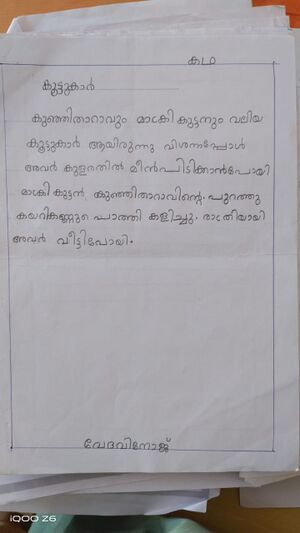 കഥ
കൂട്ടുകാർ
കുഞ്ഞിതാറാവും മാക്രികുട്ടനും വലിയ
കൂട്ടുകാർ ആയിരുന്നു വിശന്നപ്പോൾ
അവർ കുളത്തിൽ മീൻപിടിക്കാൻപോയി
മാക്രികുട്ടൻ കുഞ്ഞിതാറാവിന്റെ. പുറത്തു
കയറി കളിച്ചു. രാത്രിയായി
അവർ വീട്ടിപോയി.
വേദവിനോജ്
iQOO Z6